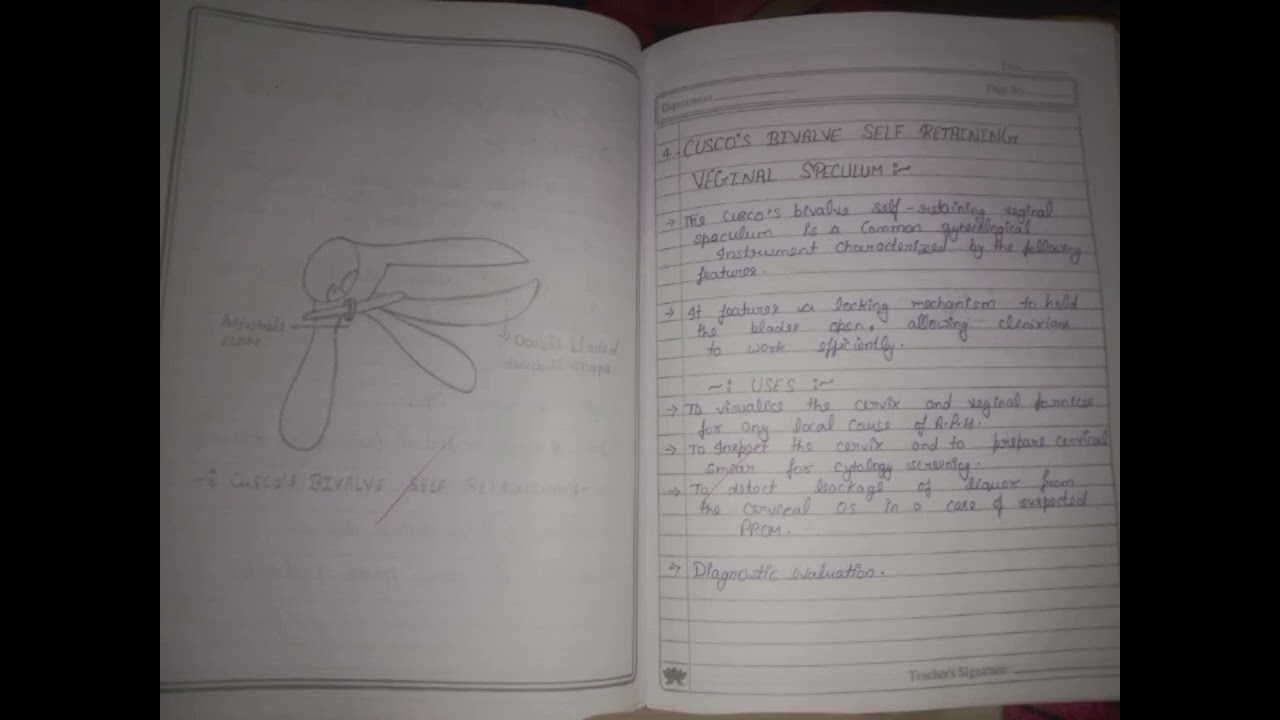 Adjustable
screw
Double bladed
-: CUSCO'S BIVALVE SELF RETAINING
Date
Experiment
Page No.
4- CUSCO'S BIVALVE SELF RETAINING
VEGINAL SPECULUM :-
→ The CUSCO'S bivalve self-retaining veginal
spaculum is a Common gynecological
Instrument characterized by the following
features.
→ It features a locking mechanism to hold
the blades open, allowing clinixians
to work efficiently.
~: USES :~
→ To visualise the cervix and veginal fornices
for any local cause of A.P.H.
→ To Inspect the cervix and to prepare cervical
smear for cytology screenig.
→ To detect leackage of liquor from
the cervical OS in a case of suspected
PROM.
→ Diagnostic evaluation.
Teacher's Signature